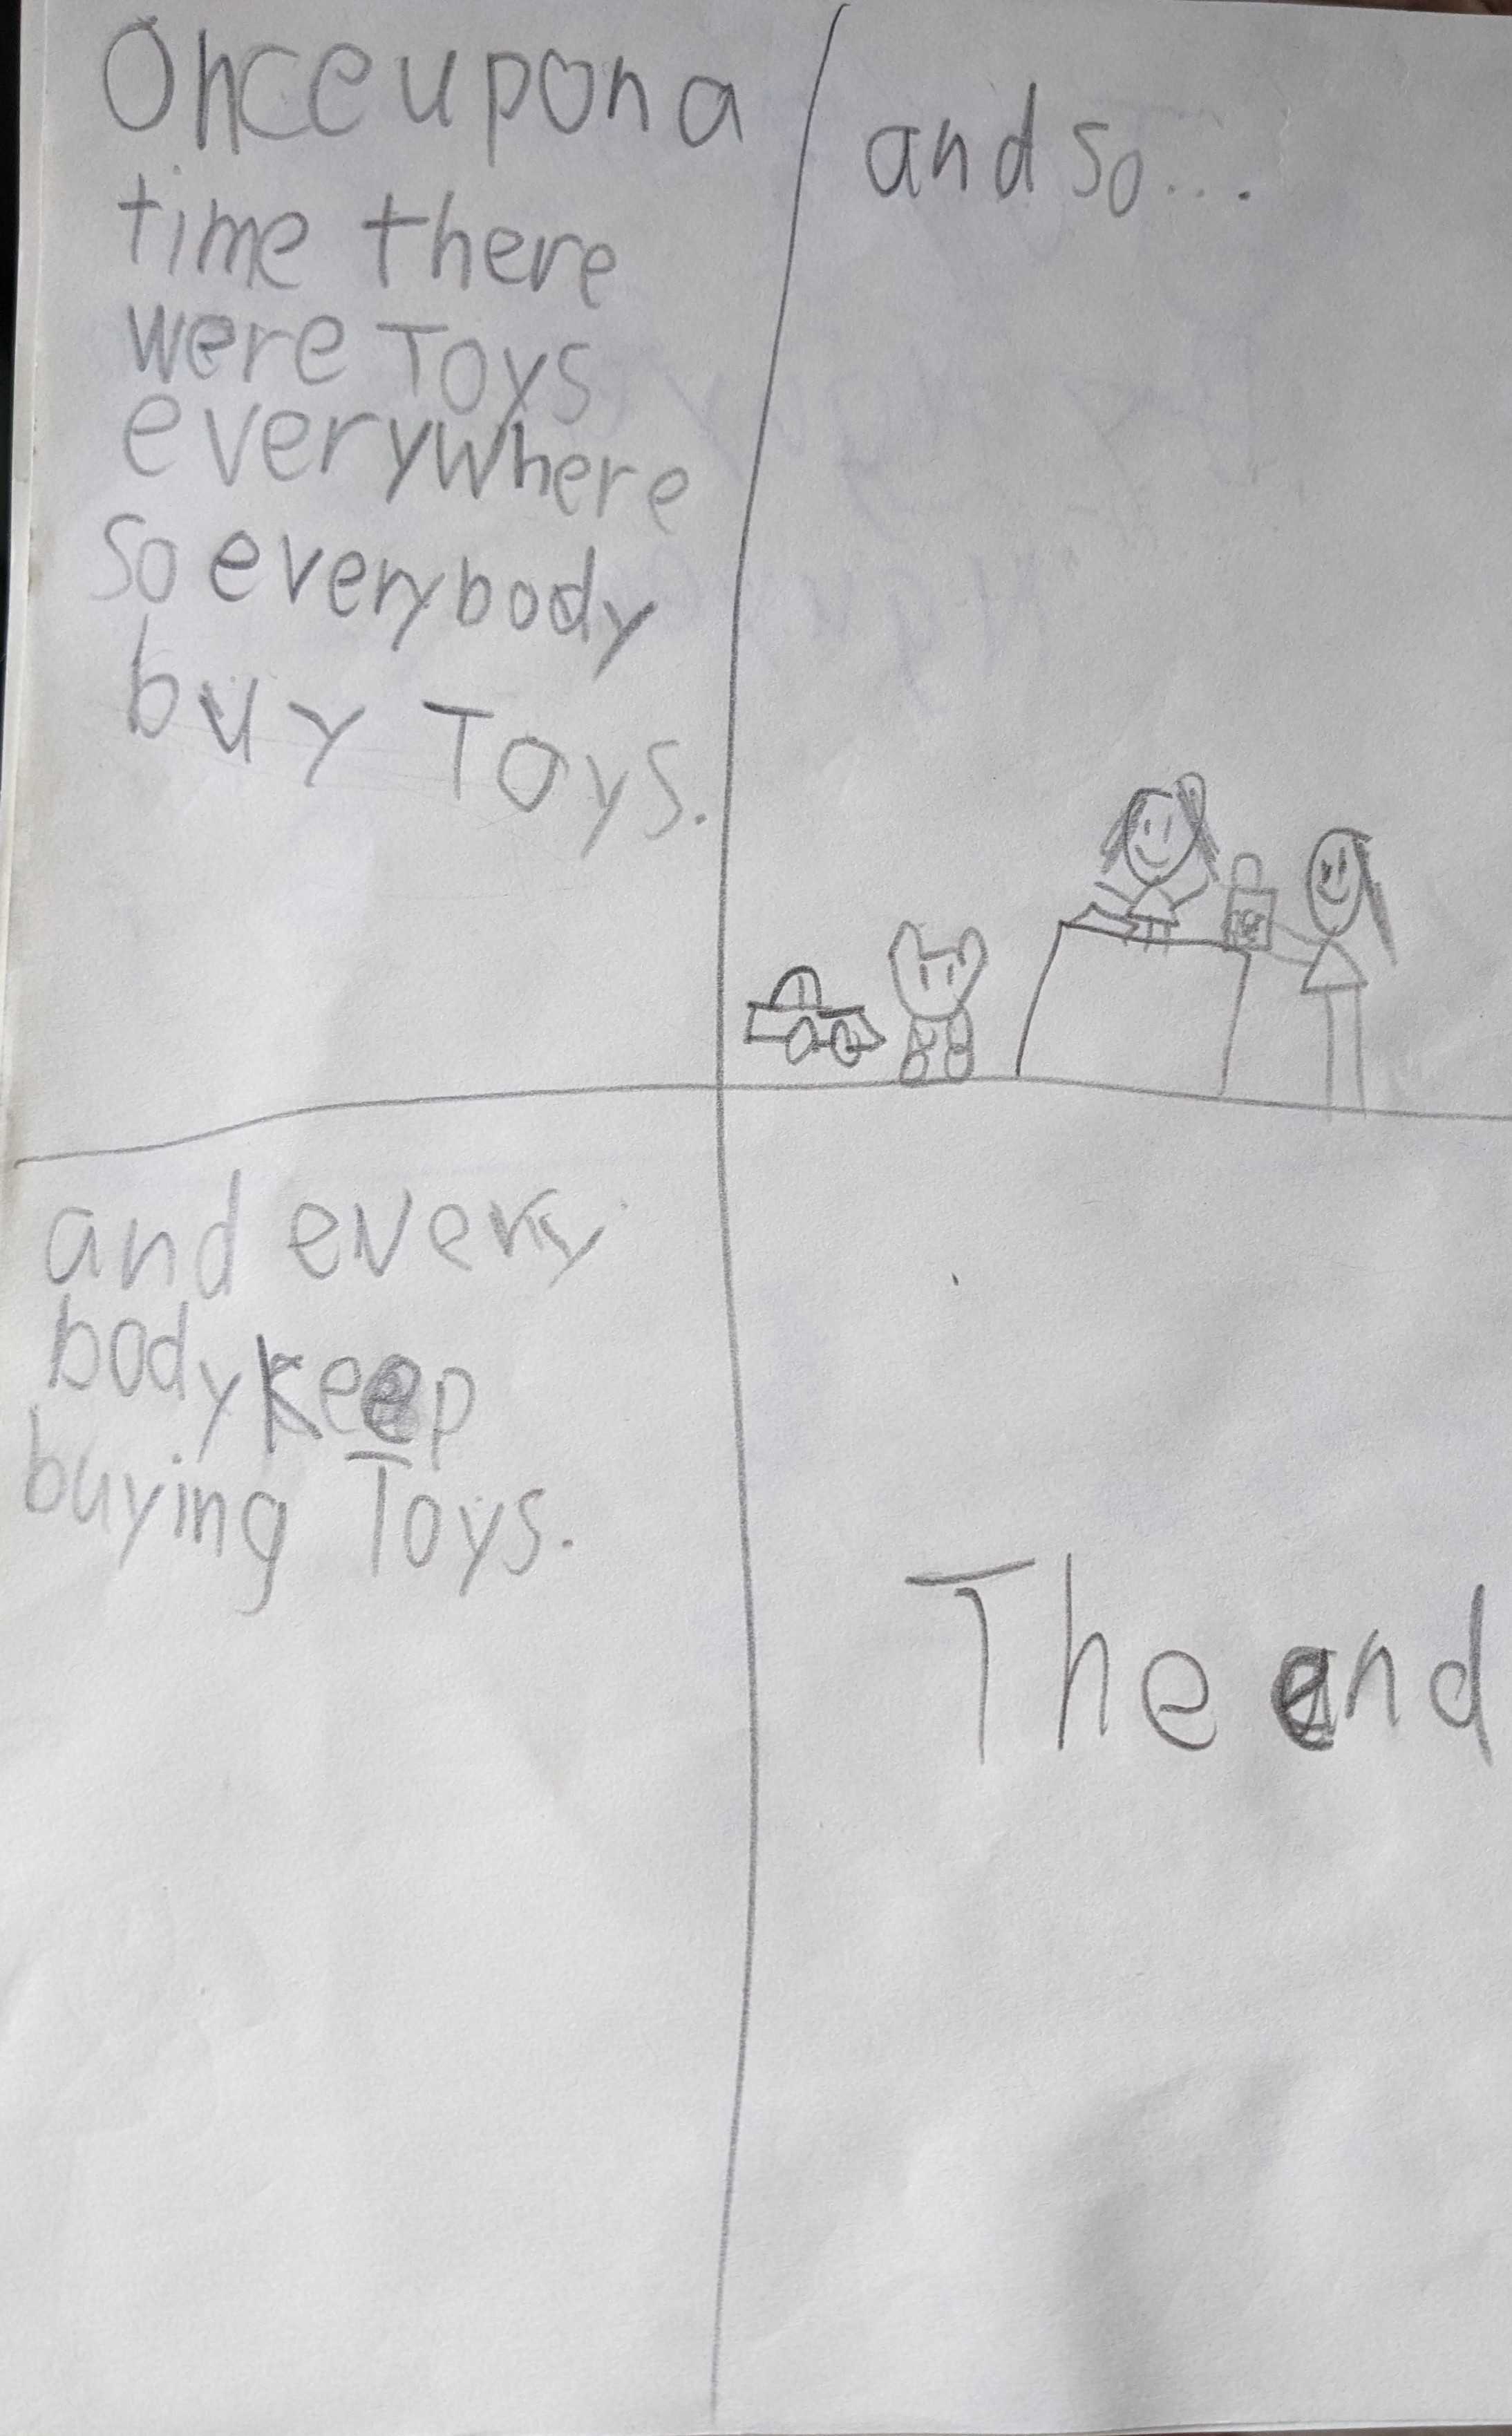 Once upon a
time there
were Toys
everywhere
so everybody
buy Toys.
and so...
and every
body keep
buying Toys.
The end